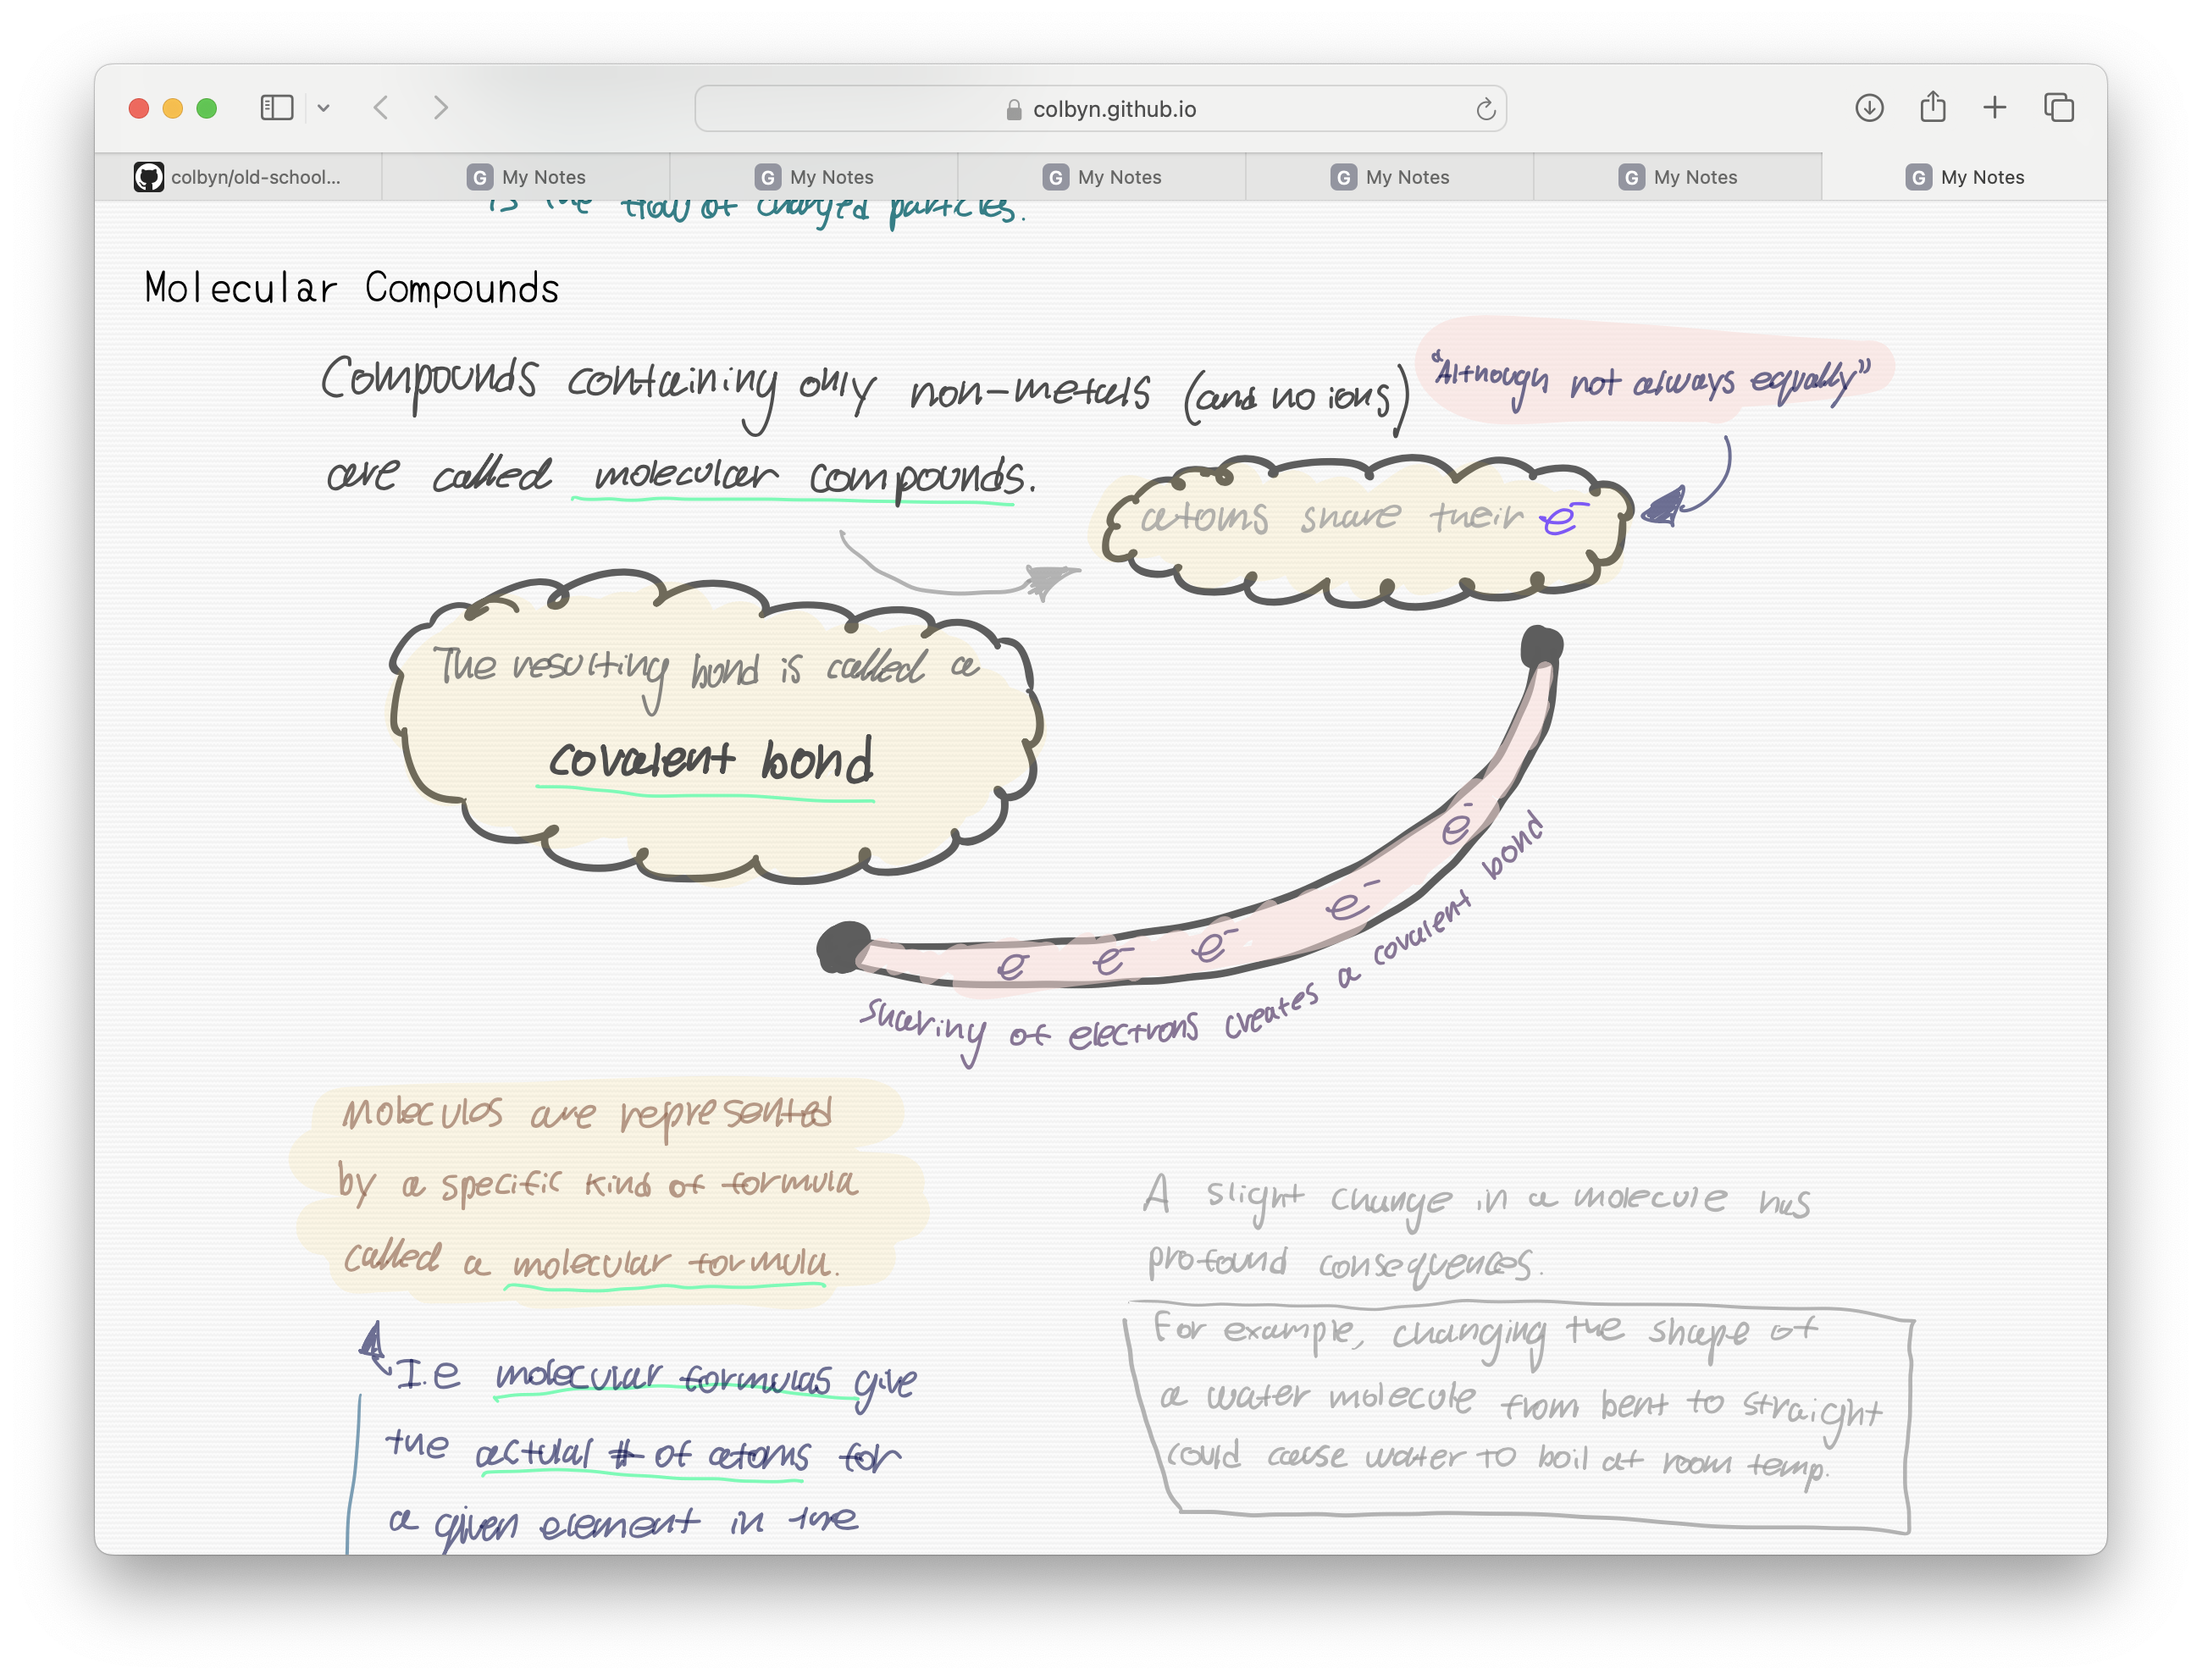 colbyn.github.io
colbyn/old-school...
G My Notes
G My Notes
G My Notes
G My Notes
G My Notes
G My Notes
is the flow of charged particles.
Molecular Compounds
Compounds containing only non-metals (and no ions)
"Although not always equally"
are called molecular compounds.
atoms share their e⁻
The resulting bond is called a
covalent bond
e⁻
e⁻
e⁻
e⁻
e⁻
sharing of electrons creates a covalent bond
Molecules are represented
by a specific kind of formula
called a molecular formula.
A slight change in a molecule has
profound consequences.
For example, changing the shape of
a water molecule from bent to straight
could cause water to boil at room temp.
I.e molecular formulas give
the actual # of atoms for
a given element in the